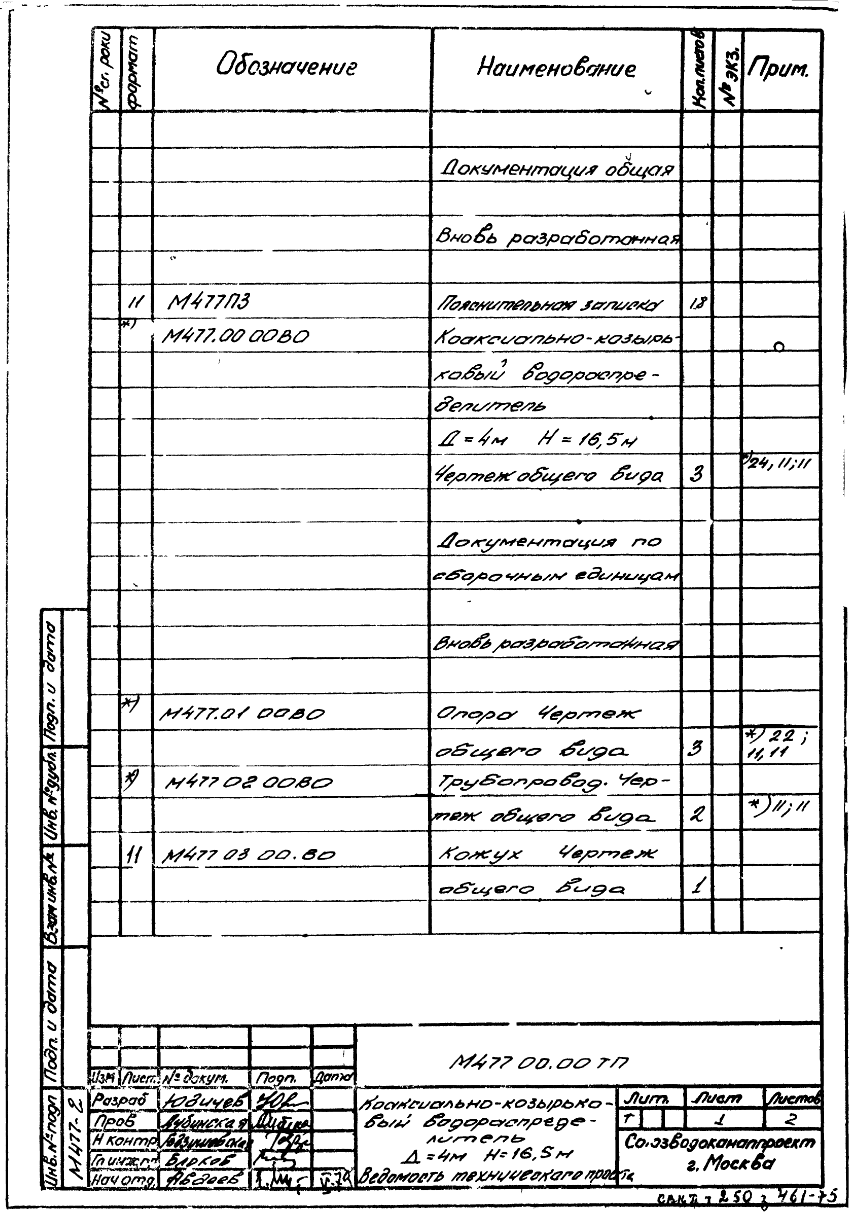 № строки формат Обозначение Наименование Кол.листов № экз. Прим.
Документация общая
Вновь разработанная
11 М477ПЗ Пояснительная записка 18
*) М477.00 00ВО Коаксиально-козырь-
ковый водораспре-
делитель
Д=4м Н=16,5м
Чертеж общего вида 3 *)24, 11; 11
Документация по
сборочным единицам
Вновь разработанная
*) М477.01 00ВО Опора Чертеж
общего вида 3 *) 22;
11,11
*) М477 02 00ВО Трубопровод. Чер-
теж общего вида 2 *) 11; 11
11 М477 03 00.ВО Кожух Чертеж
общего вида 1
Подп. и дата
Инв. № дубл.
Взам инв. №
Подп. и дата
Инв. № подп М477-2
М477 00.00 ТП
Изм Лист № докум. Подп. Дата
Разраб Юдичев
Пров Дубинская
Н контр
Гл инж.пр Барков
Нач отд. Авдеев
Коаксиально-козырько-
вый водораспреде-
литель
Д=4м Н=16,5м
Ведомость технического проекта
Лит. Лист Листов
Т 1 2
Союзводоканалпроект
г. Москва
250 461-75